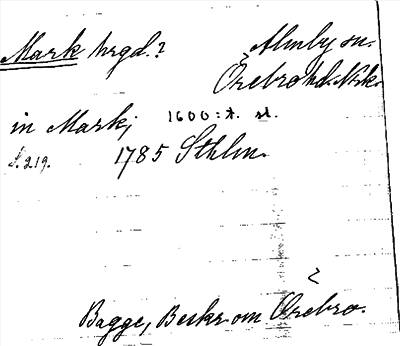 Mark hrgd.? Almby sn.
Örebro hd. Nrk.
in Mark; 1600:t. sl.
S. 219. 1785 Sthlm.
Bagge, Beskr. om Örebro.